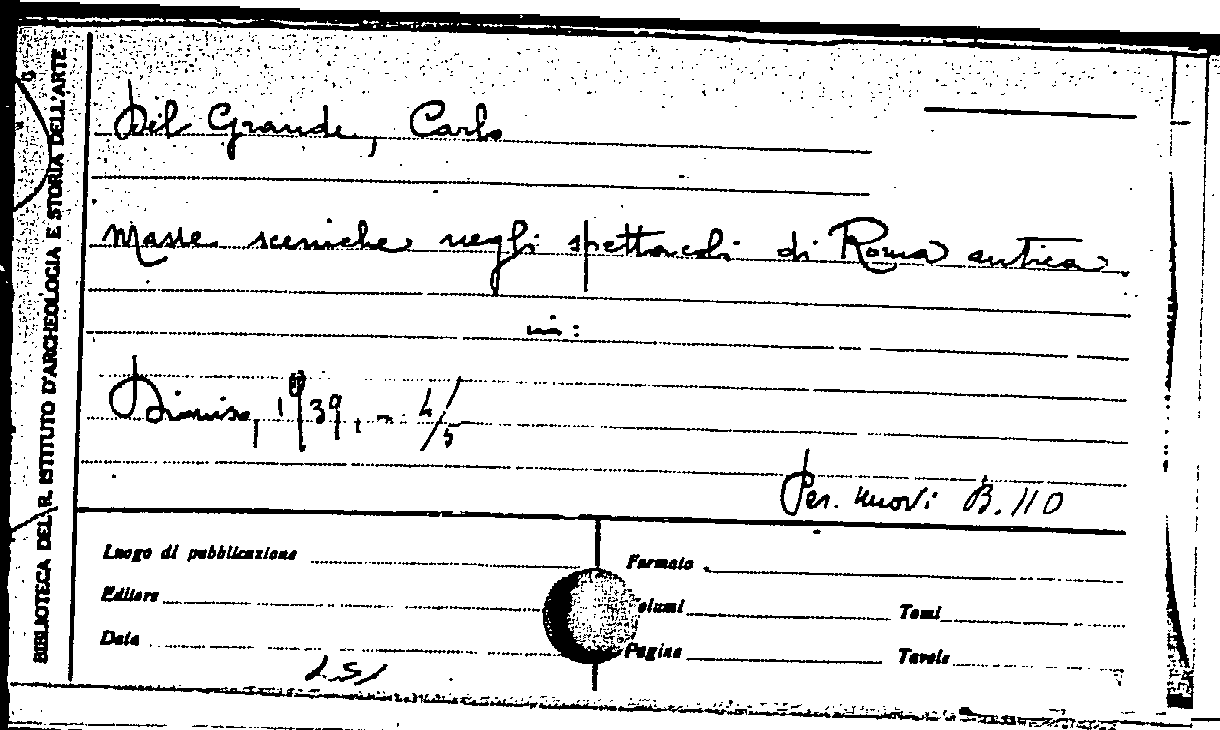 BIBLIOTECA DEL R. ISTITUTO D'ARCHEOLOGIA E STORIA DELL'ARTE
Del Grande, Carlo
Masse sceniche negli spettacoli di Roma antica
in:
Dioniso, 1939, - 4/5
Per. nuovi B. 110
Luogo di pubblicazione
Formato
Editore
olumi
Tomi
Data
Pagine
Tavole